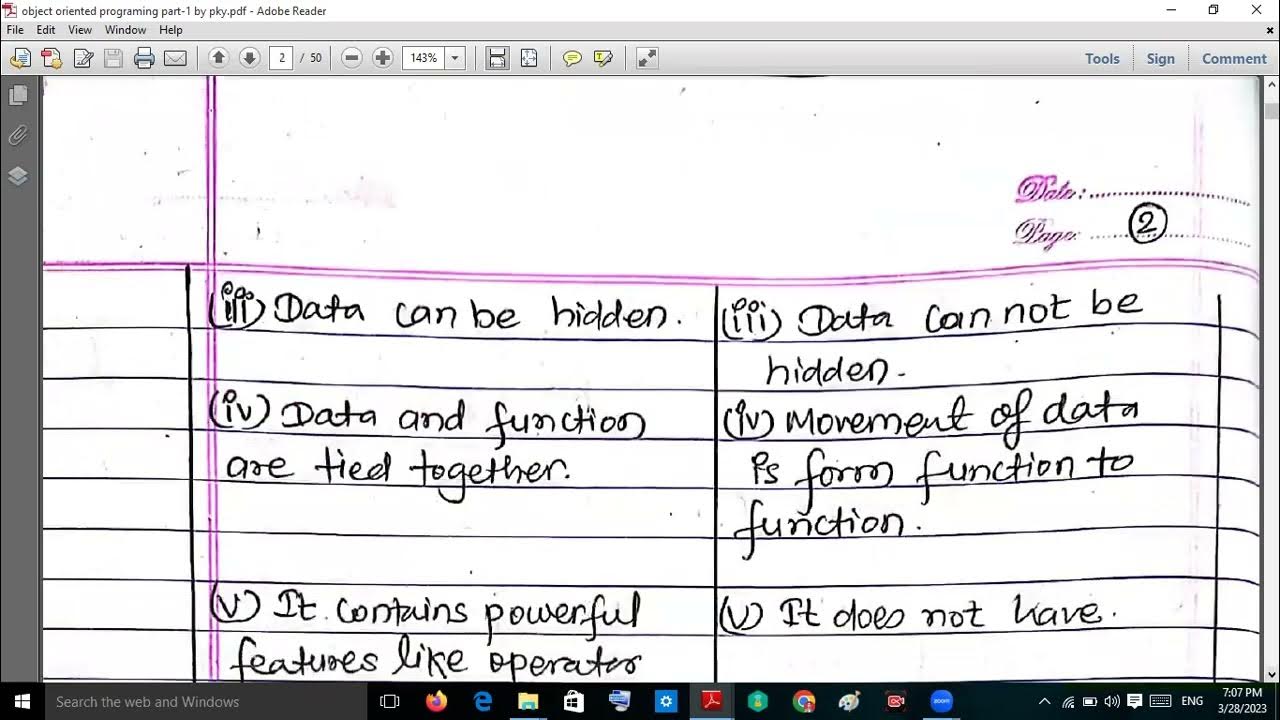 object oriented programing part-1 by pky.pdf - Adobe Reader
File Edit View Window Help
2 / 50 143% Tools Sign Comment
Date:
Page: 2
(iii) Data can be hidden.
(iv) Data and function
are tied together.
(v) It contains powerful
features like operator
(iii) Data can not be
hidden.
(iv) Movement of data
is form function to
function.
(v) It does not have.
Search the web and Windows
zoom
ENG
7:07 PM
3/28/2023